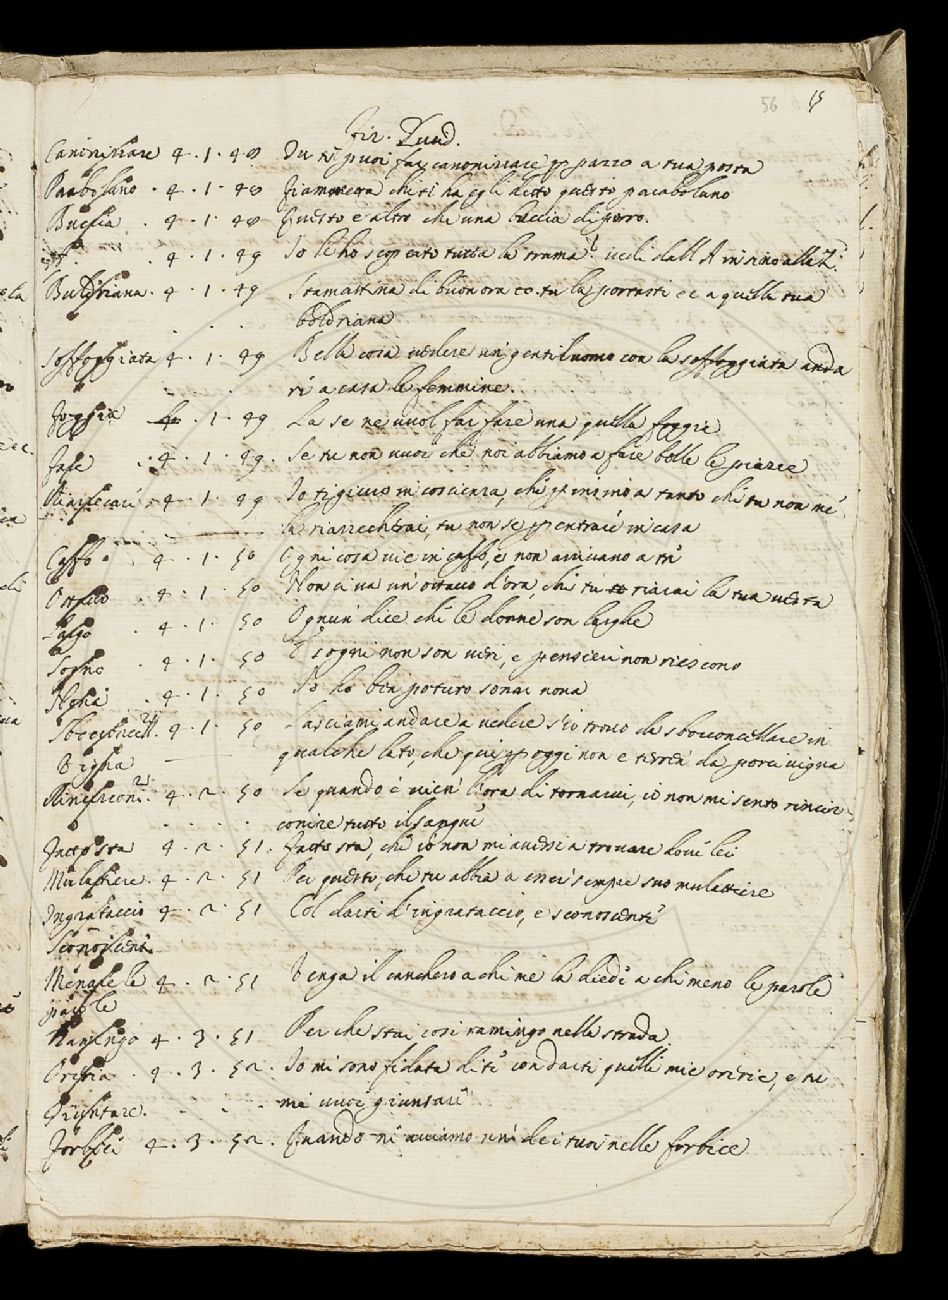 56 15
Fir. Lucid.
Canonizare 4 · 1 · 48 Tu ti puoi far canonizare p pazzo a tua posta
Parabolano · 4 · 1 · 48 Fiammetta che ti ha egli detto questo parabolano
Buccia · 4 · 1 · 48 Questo e altro che una buccia di porro.
4 · 1 · 49 Io li ho scoperto tutta la trama dall A insino alla Z
Buldriana · 4 · 1 · 49 Stamattina di buon ora tu la portasti a quella tua
boldriana
Soffoggiata 4 · 1 · 49 Bella cosa vedere un gentiluomo con la soffoggiata anda
ri a casa le femmine.
Foggia 4 · 1 · 49 La se ne vuol far fare una quella foggia
Fare · 4 · 1 · 49 · Se tu non vuoi che noi abbiamo a fare belle le piazze
4 · 1 · 49 Io ti giuro in coscienza, che insino a tanto che tu non me
la tu non se p entrare in casa
Caffo · 4 · 1 · 50 Ogni cosa vie in caffo, e non arrivano a te
Ottavo · 4 · 1 · 50 Non ci va un ottavo d'ora, che tu riarai la tua vesta
Largo · 4 · 1 · 50 Ognun dice che le donne son larghe
Sogno · 4 · 1 · 50 E sogni non son veri, e pensieri non riescono
4 · 1 · 50 Io ho ben potuto sonar nona
4 · 1 · 50 Lasciami andare a vedere s'io trovo da sbocconcellare in
Vigna qualche lato, che qui p oggi non e terren da porci vigna
4 · 2 · 50 Se quando e vien l'ora di tornarvi, io non mi sento rincir
conire tutto il sangue
Fatto sta 4 · 2 · 51 · Fatto sta, che io non mi avessi a trovare dove lei
Mulattiere · 4 · 2 · 51 Per questo, che tu abbia a esser sempre suo mulattiere
Ingrataccio 4 · 2 · 51 Col darti d'ingrataccio, e sconoscente
Sconoscente
Menare le 4 · 2 · 51 Venga il canchero a chi me la diede a chi meno le parole
parole
Ramingo 4 · 3 · 51 Per che stai cosi ramingo nella strada
4 · 3 · 52 · Io mi sono fidata di te con darti quelle mie e tu
Giuntare · mi vuoi giuntare
Forbici 4 · 3 · 52 · Quando ni aviamo uni dei tuoi nelle forbice